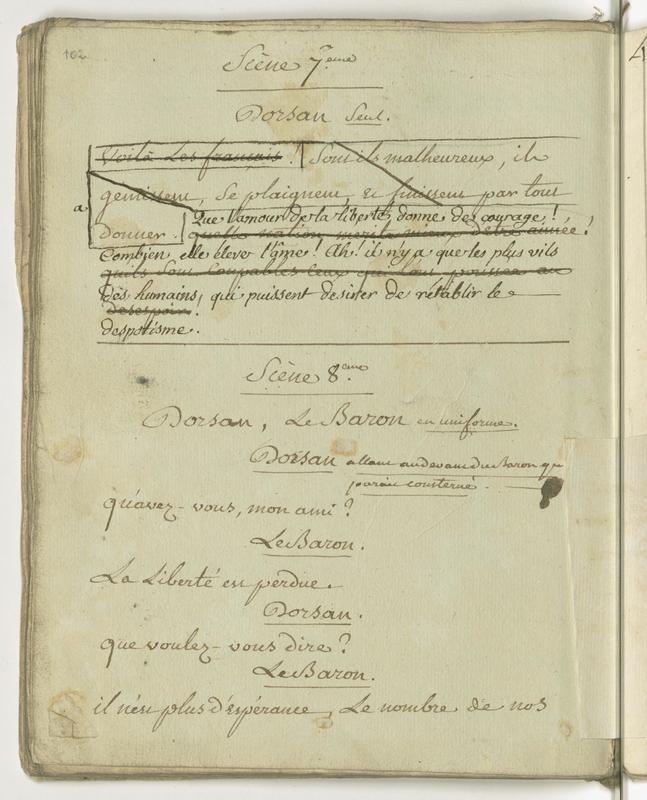 102
Scène 7.eme
Dorsan Seul.
Voilà Les français ! Sont ils malheureux, ils
gémissent, Se plaignent, et finissent par tout
a
Que l'amour de la liberté, donne de courage !,
donner. quelle nation merite mieux d'être aimée !
Combien, elle élever l'âme ! Ah ! il n'y a que les plus vils
qu'ils Sont Coupables Ceux qui l'ont poussée au
des humains, qui puissent desirer de rétablir le
desespoir !
despotisme.
Scène 8.eme
Dorsan, Le Baron en uniforme.
Dorsan allant audevant du Baron qui
parait consterné.
qu'avez-vous, mon ami ?
Le Baron.
La Liberté est perdue.
Dorsan.
que voulez-vous dire ?
Le Baron.
il n'est plus d'espérance, Le nombre de nos